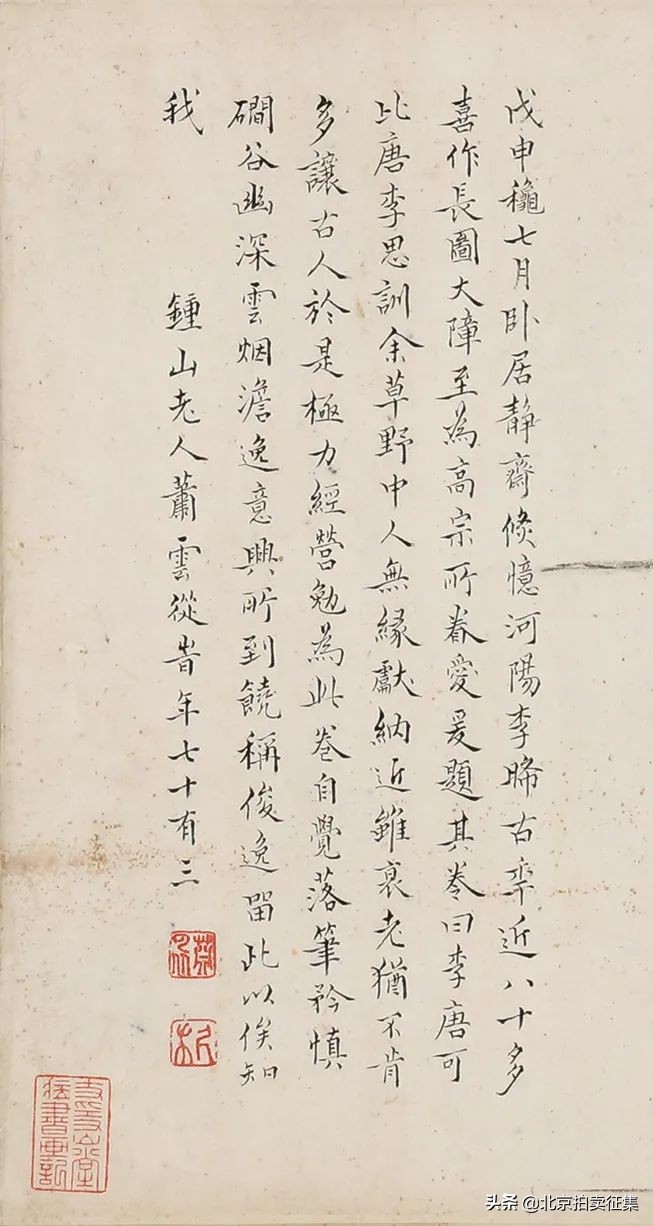 戊申龝七月卧居静齋倐憶河陽李晞古年近八十多
喜作長圖大障至為高宗所眷愛爰題其卷曰李唐可
比唐李思訓余草野中人無緣獻納近雖衰老猶不肯
多讓古人於是極力經營勉為此卷自覺落筆矜慎
磵谷幽深雲烟澹逸意興所到饒稱俊逸留此以俟知
我
鍾山老人蕭雲從旹年七十有三
頭条 @北京拍卖征集